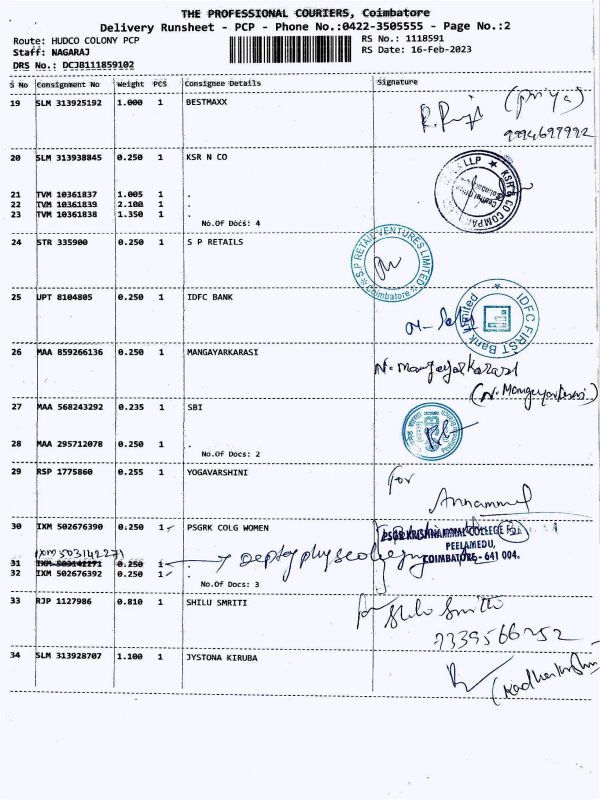 THE PROFESSIONAL COURIERS, Coimbatore
Delivery Runsheet - PCP - Phone No.:0422-3505555 - Page No.:2
Route: HUDCO COLONY PCP RS No.: 1118591
Staff: NAGARAJ RS Date: 16-Feb-2023
DRS No.: DCJB111859102
S No Consignment No Weight PCS Consignee Details Signature
19 SLM 313925192 1.000 1 BESTMAXX
(Priya)
20 SLM 313938845 0.250 1 KSR N CO
KSR & CO COMPA LLP
21 TVM 10361837 1.005 1 .
22 TVM 10361839 2.100 1 .
23 TVM 10361838 1.350 1 .
No.Of Docs: 4
24 STR 335900 0.250 1 S P RETAILS
S.P RETAIL VENTURES LIMITED
Coimbatore
25 UPT 8104805 0.250 1 IDFC BANK
IDFC FIRST Bank Limited
26 MAA 859266136 0.250 1 MANGAYARKARASI
N. Mangayarkarasi
27 MAA 568243292 0.235 1 SBI
28 MAA 295712078 0.250 1 .
No.Of Docs: 2
29 RSP 1775860 0.255 1 YOGAVARSHINI
For
Annammal
30 IXM 502676390 0.250 1 PSGRK COLG WOMEN
PSGR KRISHNAMMAL COLLEGE FOR
PEELAMEDU,
COIMBATORE - 641 004.
IXM 503142271
31 IXM 503142271 0.250 1
32 IXM 502676392 0.250 1 .
No.Of Docs: 3
33 RJP 1127986 0.810 1 SHILU SMRITI
for Shilu Smitto
34 SLM 313928707 1.100 1 JYSTONA KIRUBA